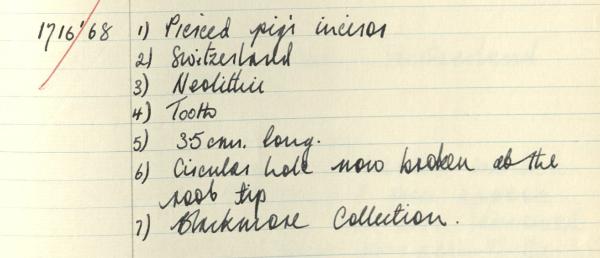 1716/'68 1) Pierced pig's incisor
2) Switzerland
3) Neolithic
4) Tooth
5) 35 cms. long.
6) Circular hole now broken at the
root tip
7) Blackmore Collection.